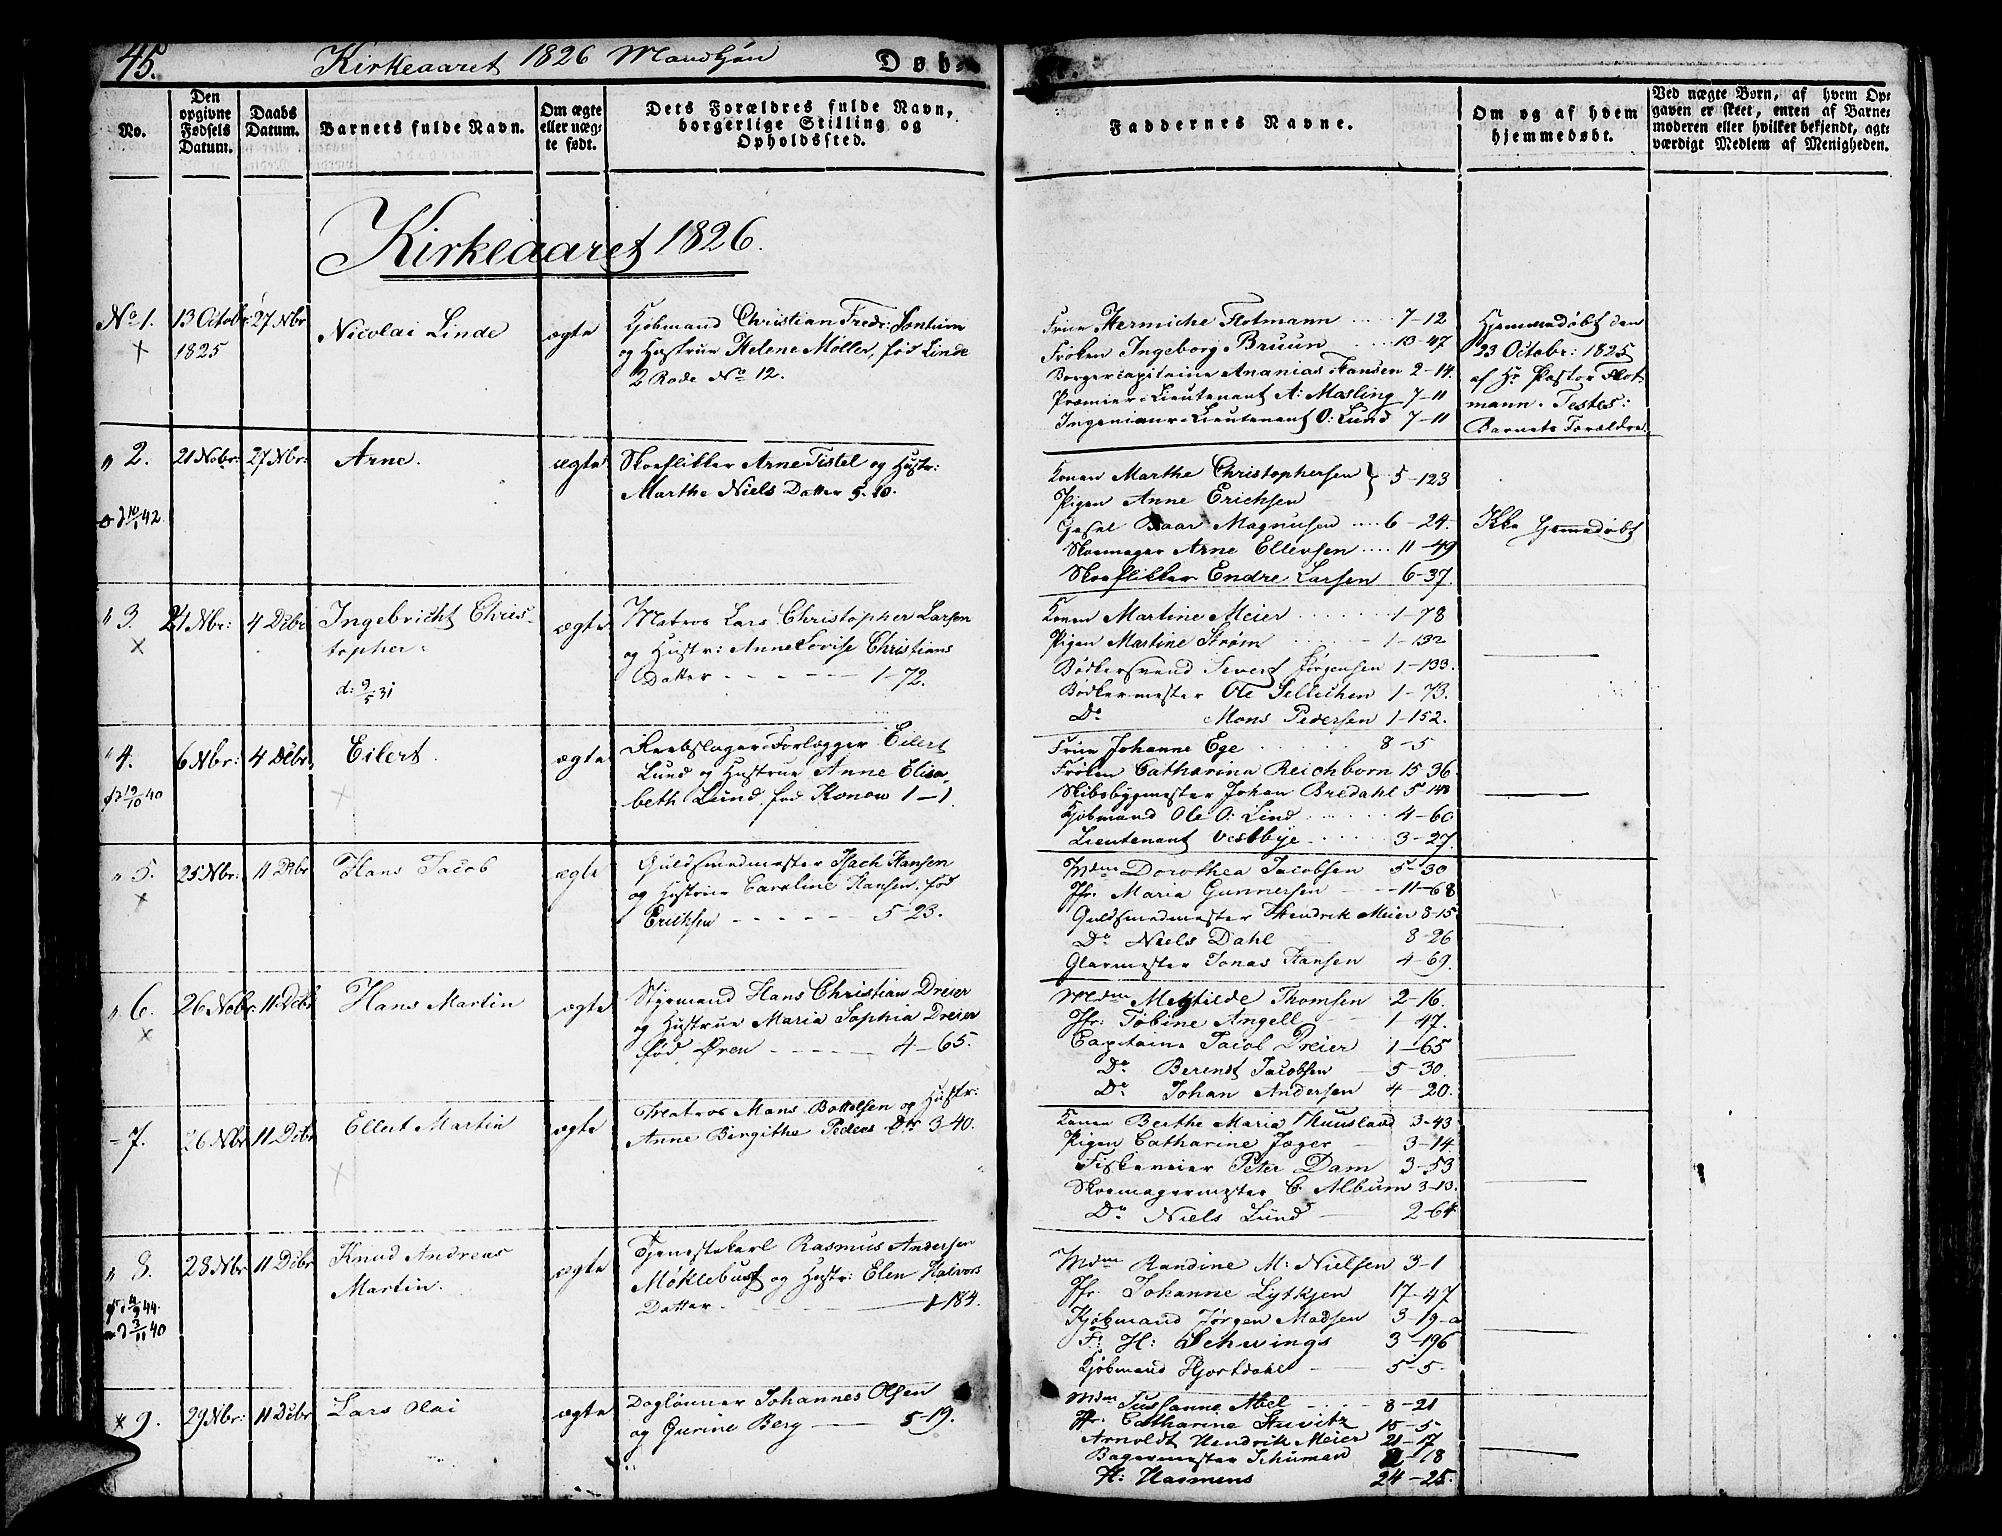 45. Kirkeaaret 1826 Mandkjøn Døb
No.
Den opgivne Fødsels Datum.
Daabs Datum.
Barnets fulde Navn.
Om ægte eller uægte født.
Dets Forældres fulde Navn, borgerlige Stilling og Opholdssted.
Faddernes Navne.
Om og af hvem hjemmedøbt.
Ved uægte Børn, af hvem Op-
gaven er skeet, enten af Barne-
moderen eller hvilket bekjendt, agt-
værdigt Medlem af Menigheden.
Kirkeaaret 1826.
No 1. 13 Octobr: 27 Nbr Nicolai Linde ægte Kjøbmand Christian Fredr:
× 1825 og Hustrue Helene Møller, fød Linde
2 Rode No 12.
Frue Hermiche Flotmann 7-12
Frøken Ingeborg Bruun 13-47
Borgercapitaine Ananias Hansen 2-14.
Premier-Lieutenant A: Masling 7-11
Ingenieur-Lieutenant O: Lund 7-11
Hjemmedøbt den
23 Octobr: 1825
af Hr Pastor Flot-
mann. Testes:
Barnets Forældre.
" 2. 21 Nobr: 27 Nbr: Arne. ægte Skoeflikker Arne Tistel og Hustr:
Marthe Niels Datter 5-10.
d 10/1 42.
Konen Marthe Christophersen } 5-123
Pigen Anne Erichsen
Gesel Baar Magnusen 6-24.
Skomager Arne Ellevsen 11-49
Skoeflikker Endre Larsen 6-37.
Ikke hjemmedøbt
" 3. 21 Nbr: 4 Debr Ingebricht Chris- ægte Matros Lars Christopher Larsen
× topher: og Hustr: Anne Lovise Christians
d: 9/5 31 Datter - - - 1-72.
Konen Martine Meier 1-78
Pigen Martine Strøm 1-132
Bødkersvend Severt Jørgensen 1-133.
Bødkermester Ole Sellichen 1-73.
Do Mons Pedersen 1-152.
" 4. 6 Nbr: 4 Debr, Eilert. ægte Reebslager-Forlægger Eilert
Lund og Hustrue Anne Elisa-
beth Lund, fød Konow 1-1.
d 19/10 40 ×
Frue Johanne Ege 8-5
Frøken Catharina Reichborn 15 36.
Skibsbygmester Johan Bredahl 5 148
Kjøbmand Ole O: Lind 4-60
Lieutenant Vestbye 3-27.
" 5. 25 Nbr: 11 Debr Hans Jacob ægte Guldsmedmester Isach Hansen
× og Hustrue Caroline Hansen, fød
Eriksen - - - 5-23.
Mdme Dorothea Jacobsen 5-30
Jfr: Maria Gunnersen 11-68
Guldsmedmester Hendrik Meier 8-15
Do Niels Dahl 8-26
Glarmester Jonas Hansen 4-69.
" 6. 26 Nobr: 11 Debr Hans Martin ægte Styrmand Hans Christian Dreier
× og Hustrue Maria Sophia Dreier
fød Øren - - - 4-65.
Mdme Megtilde Thomsen 2-16.
Jfr: Tobine Angell 1-47.
Capitaine Jacob Dreier 1-65
Do Berendt Jacobsen 5-30.
Do Johan Andersen 4-20.
- 7. 26 Nbr 11 Debr Ellert Martin ægte Matros Mons Bottelsen og Hustr:
× Anne Birgithe Peders Dtr 3-40.
Konen Berthe Maria Muusland 3-43
Pigen Catharine Jæger 3-14.
Fiskeveier Peter Dam 3-53
Skoemagermester C. Album 3-13.
Do Niels Lund 2-64
" 8. 28 Nbr 11 Debr Knud Andreas ægte Tjenestekarl Rasmus Andersen
Martin. Møklebust og Hustr: Elen Halvors
Datter 1-184.
4/9 44.
3/11 40
Mdme Randine M: Nielsen 3-1
Jfr. Johanne Lytkjen 17-47
Kjøbmand Jørgen Madsen 3-19-a
F. H: Schwings 3-196
Kjøbmand Hjortdahl 5-5.
× 9. 29 Nbr: 11 Debr Lars Olai ægte Daglønner Johannes Olsen
og Gurine Berg 5-19.
Mdme Sussanne Abel 8-21
Jfr: Catharine Stuvitz 15-5
Arnoldt Hendrik Meier 21-17
Bagermester Schuman -18
H: Harmens 24-25.